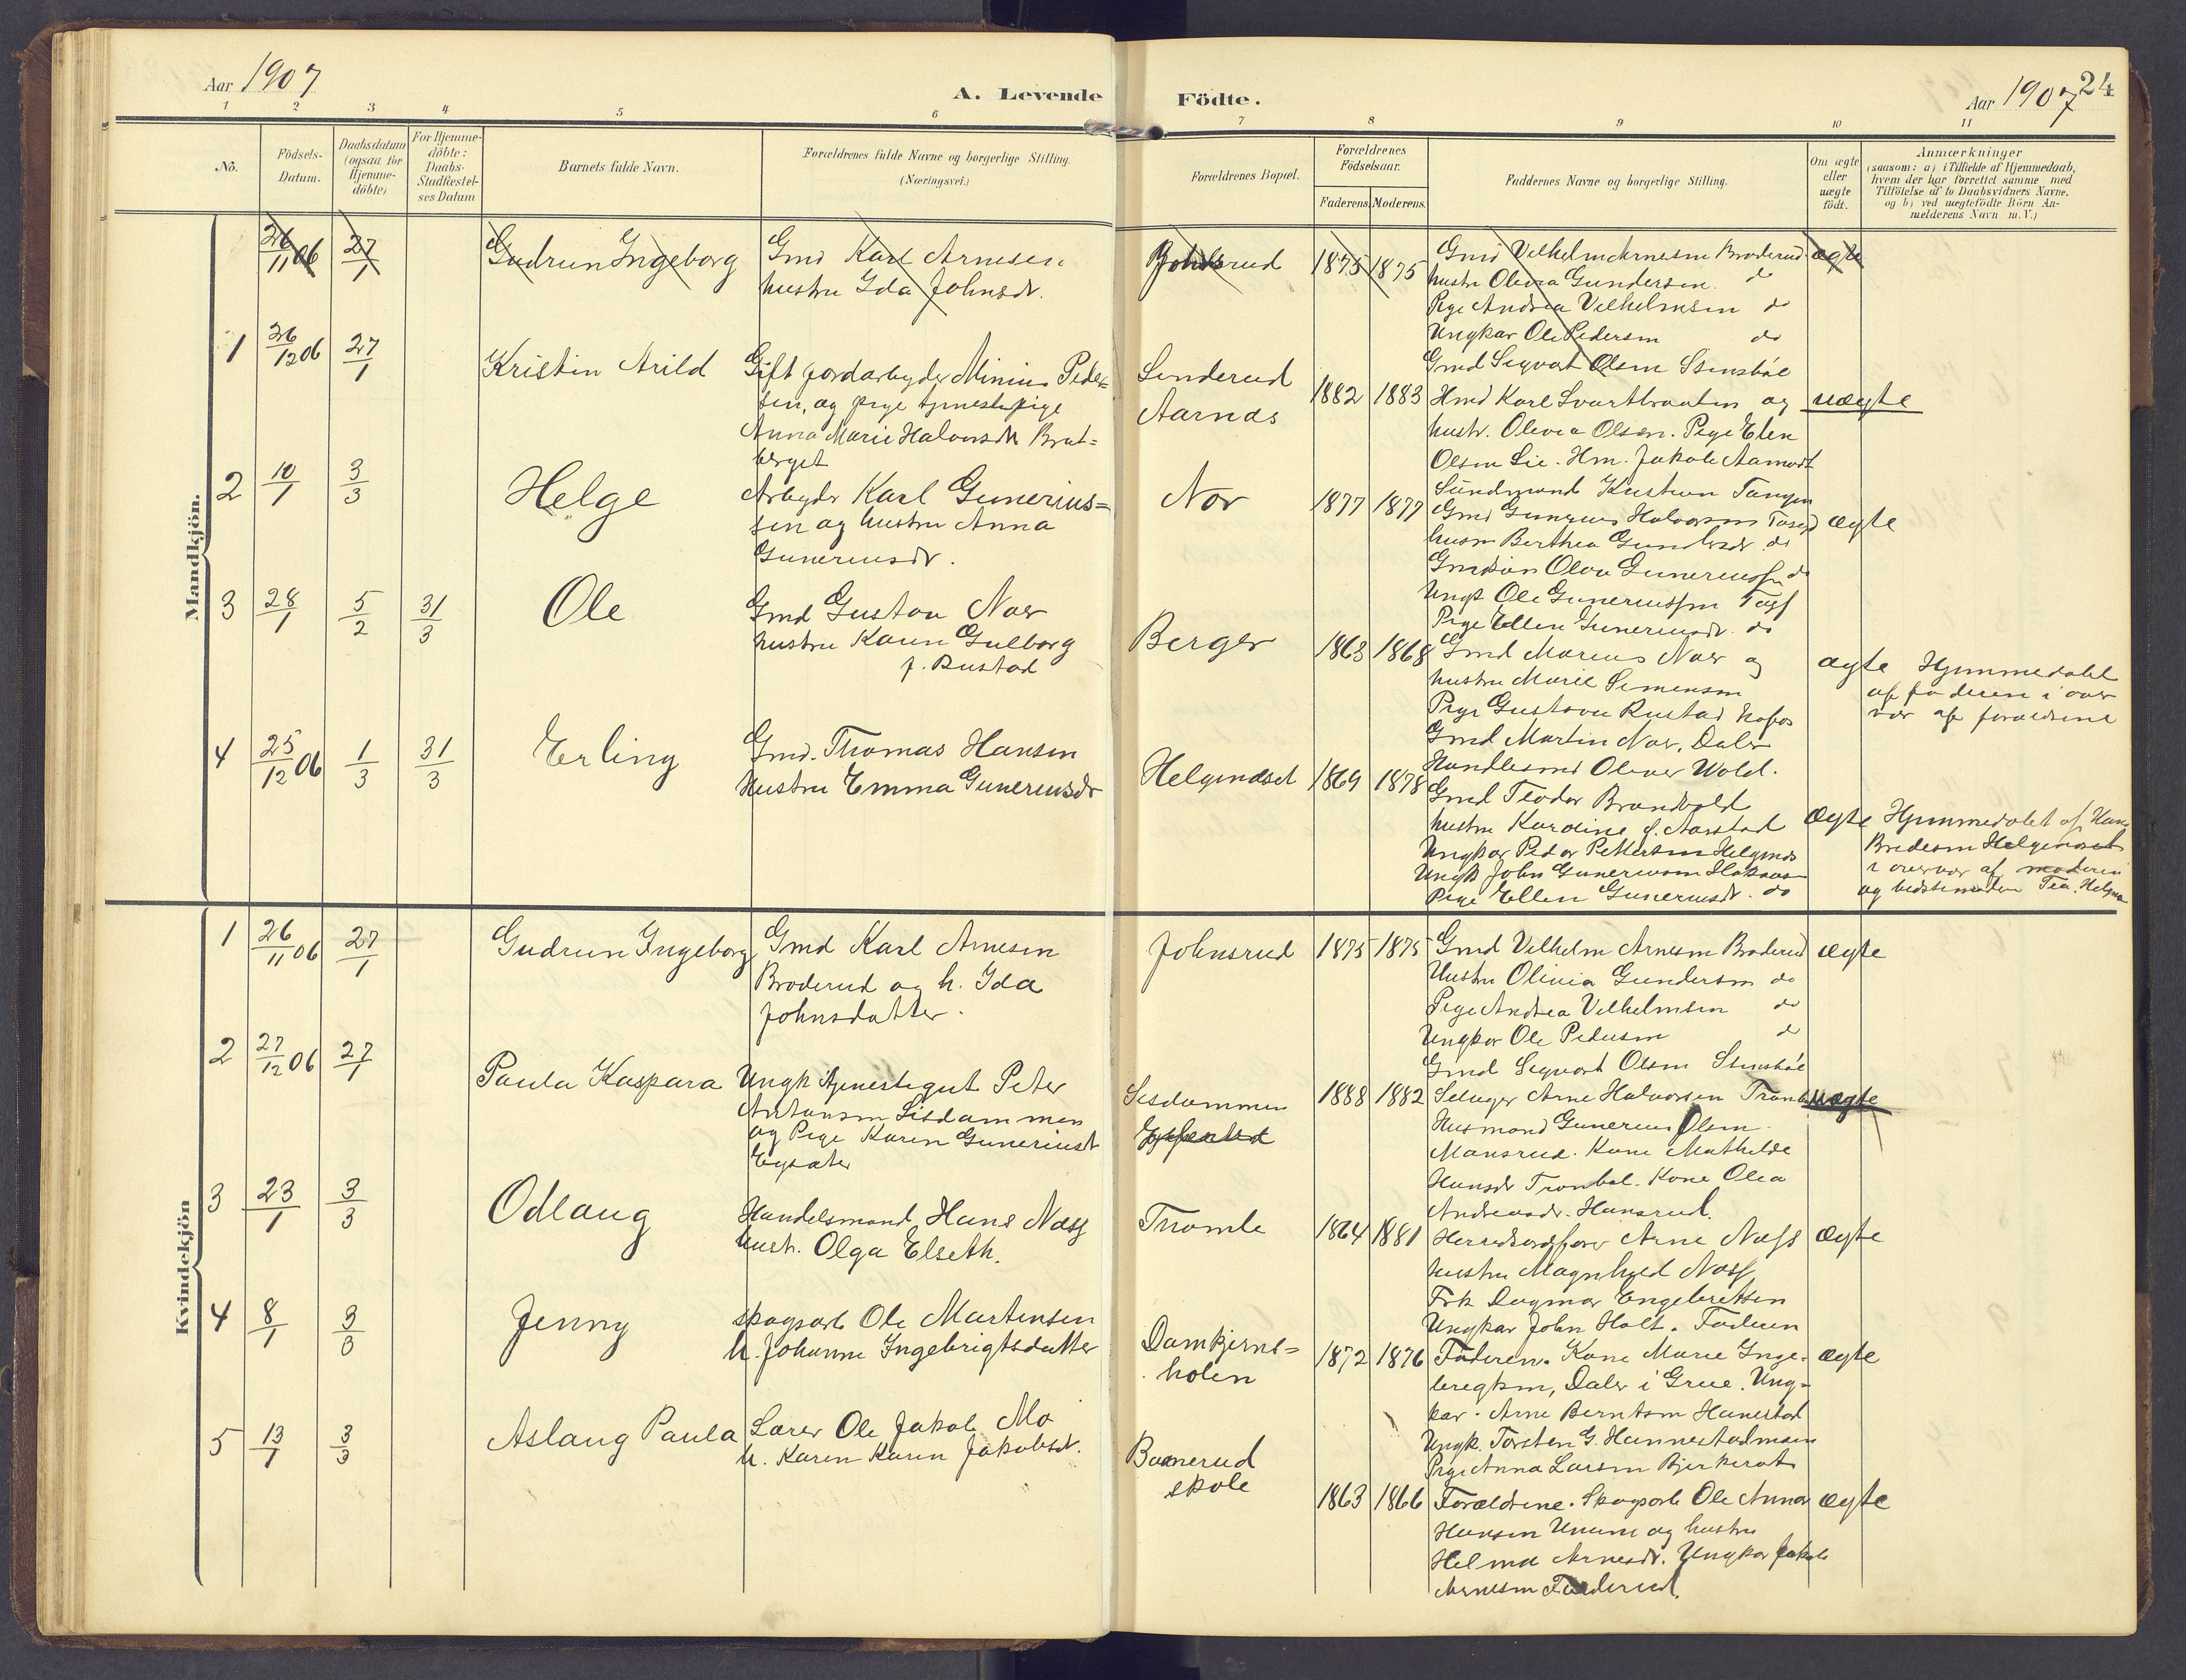 Aar 1907
A. Levende
Födte.
Aar 1907
24
1 2 3 4 5 6
7 8 9 10 11
No.
Födsels-
Datum.
Daabsdatum
(ogsaa for
Hjemme-
döbte)
For Hjemme-
döbte:
Daabs-
Stadfæstel-
ses Datum
Barnets fulde Navn.
Forældrenes fulde Navne og borgerlige Stilling.
(Næringsvei.)
Forældrenes Bopæl.
Forældrenes
Födselsaar.
Faderens. Moderens.
Faddernes Navne og borgerlige Stilling.
Om ægte
eller
uægte
födt.
Anmærkninger
(saasom: a) i Tilfælde af Hjemmedaab,
hvem der har forrettet samme med
Tilföielse af to Daabsvidners Navne,
og b) ved uægtefödte Börn An-
melderens Navn m. V.)
Mandkjön.
26/11 06 27/1 Gudrun Ingeborg
Gmd Karl Arnesen
hustru Ida Johnsdr.
Johnsrud 1875 1875
Gmd Vilhelm Arnesen Broderud
hustru Olivia Gundersen do
Pige Andrea Vilhelmsen do
Ungkar Ole Pedersen do
Gmd Sigvart Olsen Stensböl
ægte
1 26/12 06 27/1 Kristin Arild
Gift jordarbeider Minius Peder=
sen, og pige tjenestepige
Anna Marie Halvorsdr Brat=
berget
Linderud
Aarnæs
1882 1883
Hmd Karl Svartbraaten og
hustr. Olivia Olsen. Pige Elen
Olsen Lie. Hm. Jakob Aamodt
Sündmand Kristian Tangen
uægte
2 10/1 3/3 Helge
Arbeider Karl Gunerius=
sen og hustru Anna
Guneriusdr.
Nor 1877 1877
Gmd Gunerius Halvorsen
Berthea do
Olva Guneriussen do
Ungk Ole Guneriussen
Pige Ellen Guneriusdr. do
ægte
3 28/1 5/2 31/3 Ole
Gmd Gustav Noer
hustru Karen Gulborg
f. Rustad
Berger 1863 1868
Gmd Marius Noer og
hustru Marie Simensen
Pige Gustava Rustad
Gmd Martin Noer, Daler
Handlesmd Oliver Wold.
ægte Hjemmedöbt
af faderen i over
vær af forældrene
4 25/12 06 1/3 31/3 Erling
Gmd. Thomas Hansen
Hustru Emma Guneriusdr
Helgendset 1869 1878
Gmd Teodor Brandvold
hustru Karoline f. Aarstad
Ungkar Peder Pettersen Helgends
Ungk John Guneriussen
Pige Ellen Guneriusdr. do
ægte Hjemmedöbt af Hans
Bredesen Helgendset
i overvær af moderen
og bedstemoderen Tea Helgen
Kvindekjön
1 26/11 06 27/1 Gudrun Ingeborg
Gmd Karl Arnesen
Broderud og h. Ida
Johnsdatter.
Johnsrud 1875 1875
Gmd Vilhelm Arnesen Broderud
Hustru Olivia Gundersen do
Pige Andrea Vilhelmsen do
Ungkar Ole Pedersen do
Gmd Sigvart Olsen Stensböl
ægte
2 27/12 06 27/1 Paula Kaspara
Ungk tjenestegut Peter
Antonsen Sisdammen
og Pige Karen Guneriusdr
Sisdammen
1888 1882
Selveger Arne Halvorsen
Husmand Gunerius Olsen
Mansrud. Kone Mathilde
Hansdr Tronbøl. Kone Olea
Andreasdr. Hansrud.
uægte
3 23/1 3/3 Odlaug
Handelsmand Hans Næss
hustr. Olga Elseth.
Thomle 1864 1881
Herredsordfører Arne Næss
hustru Magnhild Næss
Frk Dagmar Engebretsen
Ungkar John Holt. Faderen
ægte
4 8/1 3/3 Jenny
skogsarb Ole Martinsen
h. Johanne Ingebrigtsdatter
Damtjernt=
holen
1872 1876
Faderen. Kone Marie Inge-
brigtsen, Daler i Grue. Ung-
kar. Arne Berntsen Hanestad
Ungk. Torsten G. Hannestadmoen
Pige Anna Larsen
ægte
5 13/1 3/3 Aslaug Paula
Lærer Ole Jakob Mo
h. Karen Karen Jakobsdr.
Baanerud
skole
1863 1866
Forældrene. Skogsarb Ole Annar
Hansen og hustru
Helma Arnesdr. Ungkar Jakob
Arnesen
ægte